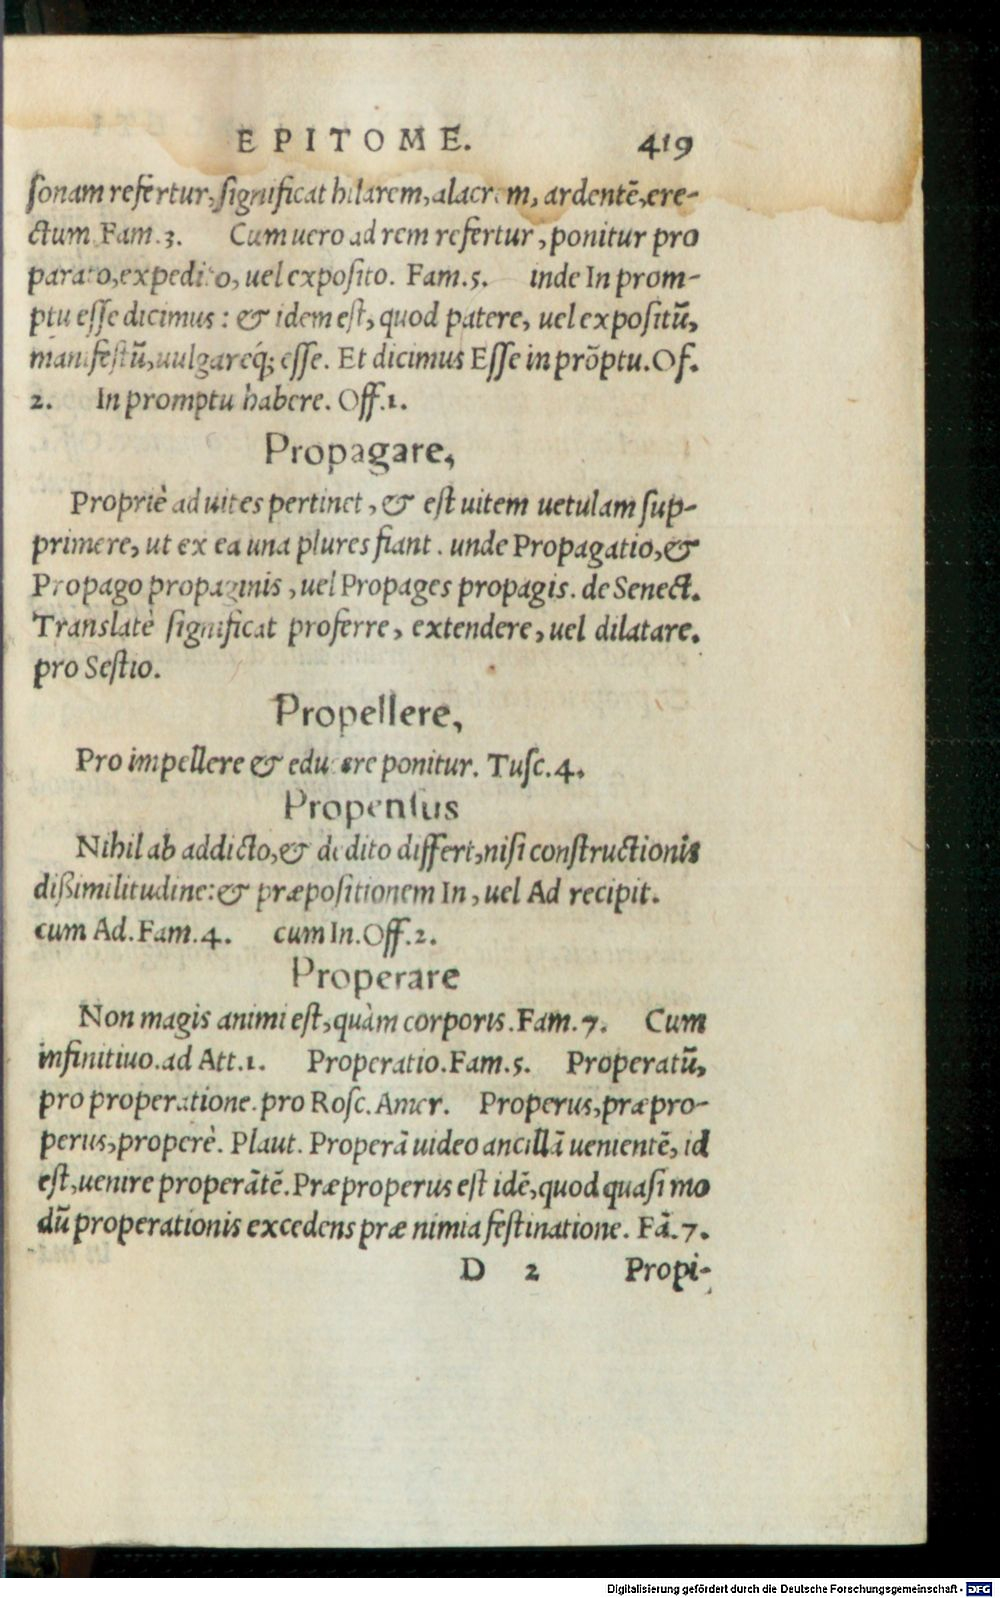 EPITOME. 419
ſonam refertur, ſignificat hilarem, alacrem, ardentē, ere-
ctum. Fam.3. Cum uero ad rem refertur, ponitur pro
parato, expedito, uel exposito. Fam.5. inde In prom-
ptu eſſe dicimus: & idem eſt, quod patere, uel expoſitū,
manifeſtū, uulgareq́; eſſe. Et dicimus Eſſe in prōptu. Of.
2. In promptu habere. Off.1.
Propagare,
Propriè ad uites pertinet, & eſt uitem uetulam ſup-
primere, ut ex ea una plures fiant. unde Propagatio, &
Propago propaginis, uel Propages propagis. de Senect.
Translatè ſignificat proferre, extendere, uel dilatare.
pro Seſtio.
Propellere,
Pro impellere & educere ponitur. Tuſc.4.
Propenſus
Nihil ab addicto, & dedito differt, niſi conſtructionis
dißimilitudine: & præpoſitionem In, uel Ad recipit.
cum Ad. Fam.4. cum In. Off.2.
Properare
Non magis animi eſt, quàm corporis. Fam.7. Cum
infinitiuo. ad Att.1. Properatio. Fam.5. Properatū,
pro properatione. pro Roſc. Amer. Properus, præpro-
perus, properè. Plaut. Properā uideo ancillā uenientē, id
eſt, uenire properātē. Præproperus eſt idē, quod quaſi mo
dū properationis excedens præ nimia feſtinatione. Fā.7.
D 2 Propi-
Digitalisierung gefördert durch die Deutsche Forschungsgemeinschaft - DFG